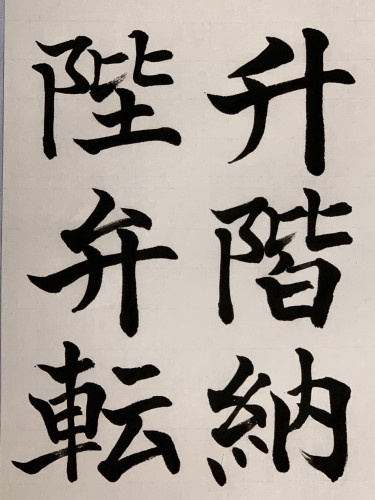 升階納
陛弁転